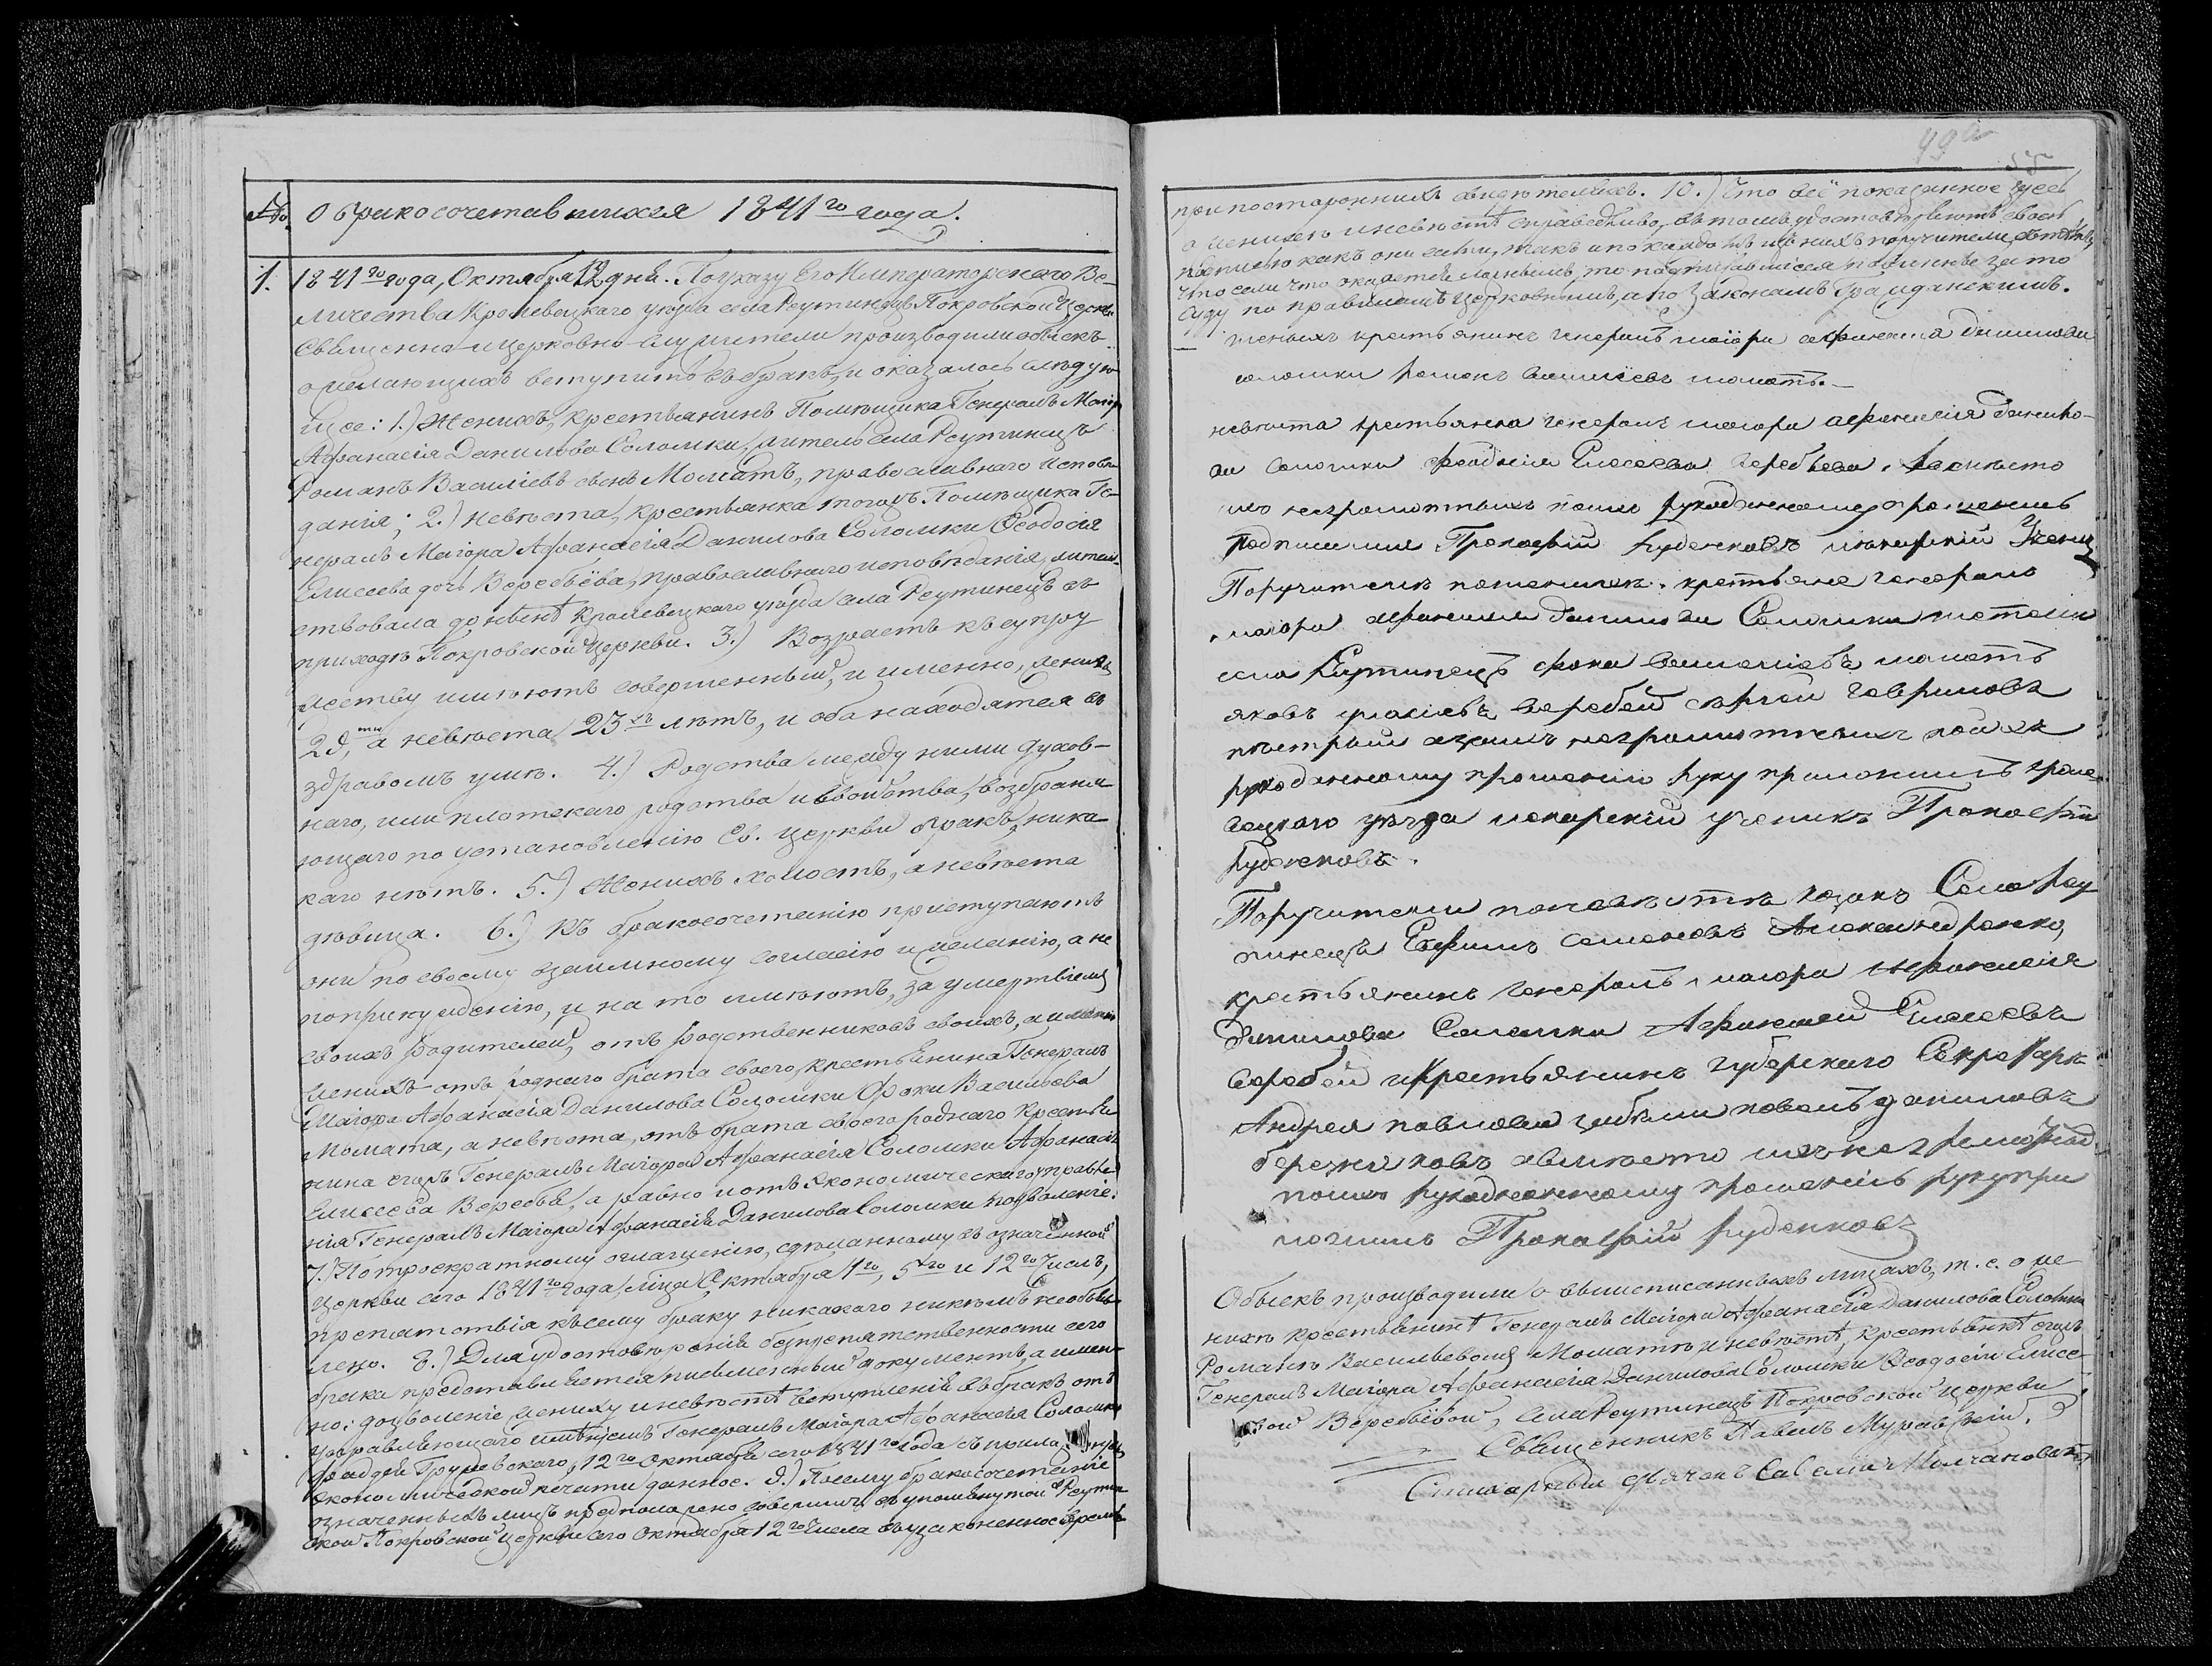 № О бракосочетавшихся 1841го года.
1. 1841го года, Октября 12 дня. По указу Его Императорскаго Ве-
личества Кролевецкаго уезда села Реутинецъ Покровской Церкви
Священно и церковно-служители производили обыскъ
о желающихъ вступить въ бракъ, и оказалось следую-
щее: 1.) Женихъ, крестьянинъ Помѣщика Генералъ Маіора
Афанасія Данилова Соломки, житель села Реутинецъ
Романъ Василіевъ сынъ Моматъ, православнаго исповѣ-
данія; 2.) невѣста, крестьянка тогожъ Помѣщика Ге-
нералъ Маіора Афанасія Данилова Соломки Ѳеодосія
Елисеева дочь Веребьёва, православнаго исповѣданія, житель-
ствовала донынѣ Кролевецкаго уѣзда села Реутинецъ въ
приходѣ Покровской Церкви. 3.) Возрастъ къ супру
жеству имѣютъ совершенный, и именно, женихъ
29ти, а невѣста 23хъ лѣтъ, и оба находятся въ
здравомъ умѣ. 4.) Родства между ними духов-
наго, или плотскаго родства и свойства, возбраня-
ющаго по установленію Св. Церкви бракъ, ника-
каго нѣтъ. 5.) Женихъ холостъ, а невѣста
дѣвица. 6.) Къ бракосочетанію приступаютъ
они по своему взаимному согласію и желанію, а не
по принужденію, и на то имѣютъ, за умертвіемъ
своихъ родителей, отъ родственниковъ своихъ, а именно
женихъ отъ роднаго брата своего, крестьянина Генералъ
Маіора Афанасія Данилова Соломки Фоки Васильева
Момата, а невѣста, отъ брата своего роднаго крестья
нина егожъ Генералъ Маіора Афанасія Соломки Афанасія
Елисеева Веребья, а равно и отъ Экономическаго управле
нія Генералъ Маіора Афанасія Данилова Соломки позволеніе.
7.) По троекратному оглашенію, сдѣланному въ означенной
Церкви сего 1841го года, мѣсяца Октября 1го, 5го и 12го числъ,
препятствія къ сему браку никакого никѣмъ не объяв
лено. 8.) Для удостовѣренія безпрепятственности сего
брака представляется письменный документъ, а имен-
но: дозволеніе жениху и невѣстѣ вступленія въ бракъ отъ
управляющаго имѣніемъ Генералъ Маіора Афанасія Соломки
Фаддея Грушевскаго, 12го Октября сего 1841го года съ
экономической печати данное. 9.) Посему бракосочетаніе
означенныхъ лицъ предположено совершить въ упомянутой Реутин
ской Покровской Церкви сего Октября 12го числа въ узаконенное время
49а
при постороннихъ свидѣтеляхъ. 10.) Что всё показанное здѣсь
о женихѣ и невѣстѣ справедливо, въ томъ удостовѣряютъ своею
подписью какъ они сами, такъ и по каждо изъ нихъ поручители, съ тѣмъ,
что если что окажется ложнымъ, то подписавшіеся повинны за то
суду по правиламъ церковнымъ, а по законамъ Гражданскимъ.
женихъ крестьянинъ генералъ маіора афанасія данилова
соломки романъ василіевъ моматъ.—
невѣста крестьянка генералъ маіора афанасія данило-
ва соломки феодосія Елесеева веребьева, а вмѣсто
ихъ неграмотныхъ поихъ рукоданному прошенію
подписалъ Прокофій Руденковъ
Поручители поженихѣ. крестьяне генералъ
маіора афанасия данилова Соломки жители
села Реутинецъ фока василиевъ моматъ
яковъ веребей сергей гавриловъ
а замѣсто неграмотныхъ поихъ
рукоданному прошенію руку приложилъ кроле-
вецкаго уѣзда лекарскій ученикъ Прокофій
Руденковъ.
Поручители поневѣстѣ козакъ Села Реу
тинецъ Ефимъ семеновъ Александренко,
крестьянинъ генералъ маіора афанасия
данилова Соломки Афанасей Елесеевъ
веребей икрестьянинъ губерскаго Секретаря
Андрея павлова павелъ даниловъ
авмѣсто ихъ неграмотныхъ
поихъ рукоданному прошенію руку при
ложилъ Прокофій Руденковъ
Обыскъ производили о вышеписанныхъ лицахъ, т. е. о же-
нихѣ крестьянинѣ Генералъ Маіора Афанасія Данилова Соломки
Романѣ Васильевомъ Моматѣ и невѣстѣ, крестьянкѣ егожъ
Генералъ Маіора Афанасія Данилова Соломки Ѳеодосіи Елисе-
евой Веребьёвой, села Реутинецъ Покровской Церкви
Священникъ Павелъ Муравскій.
дьячокъ Савелій Молчановскій